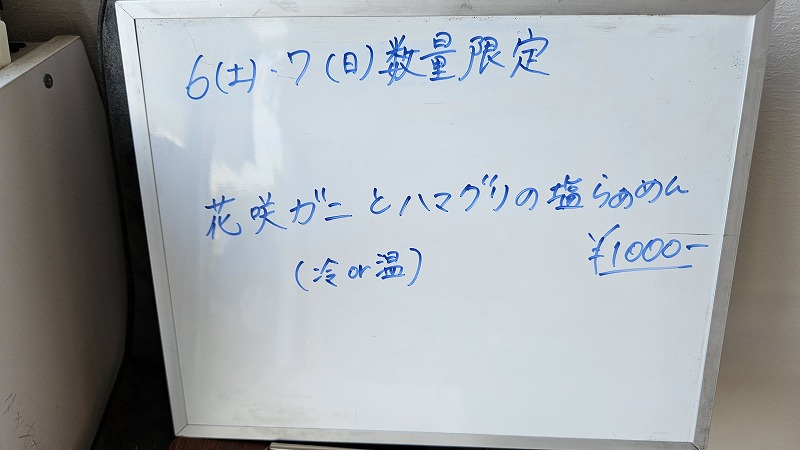 6(土)・7(日)数量限定
花咲ガニとハマグリの塩らぁめん
(冷or温) ¥1000-